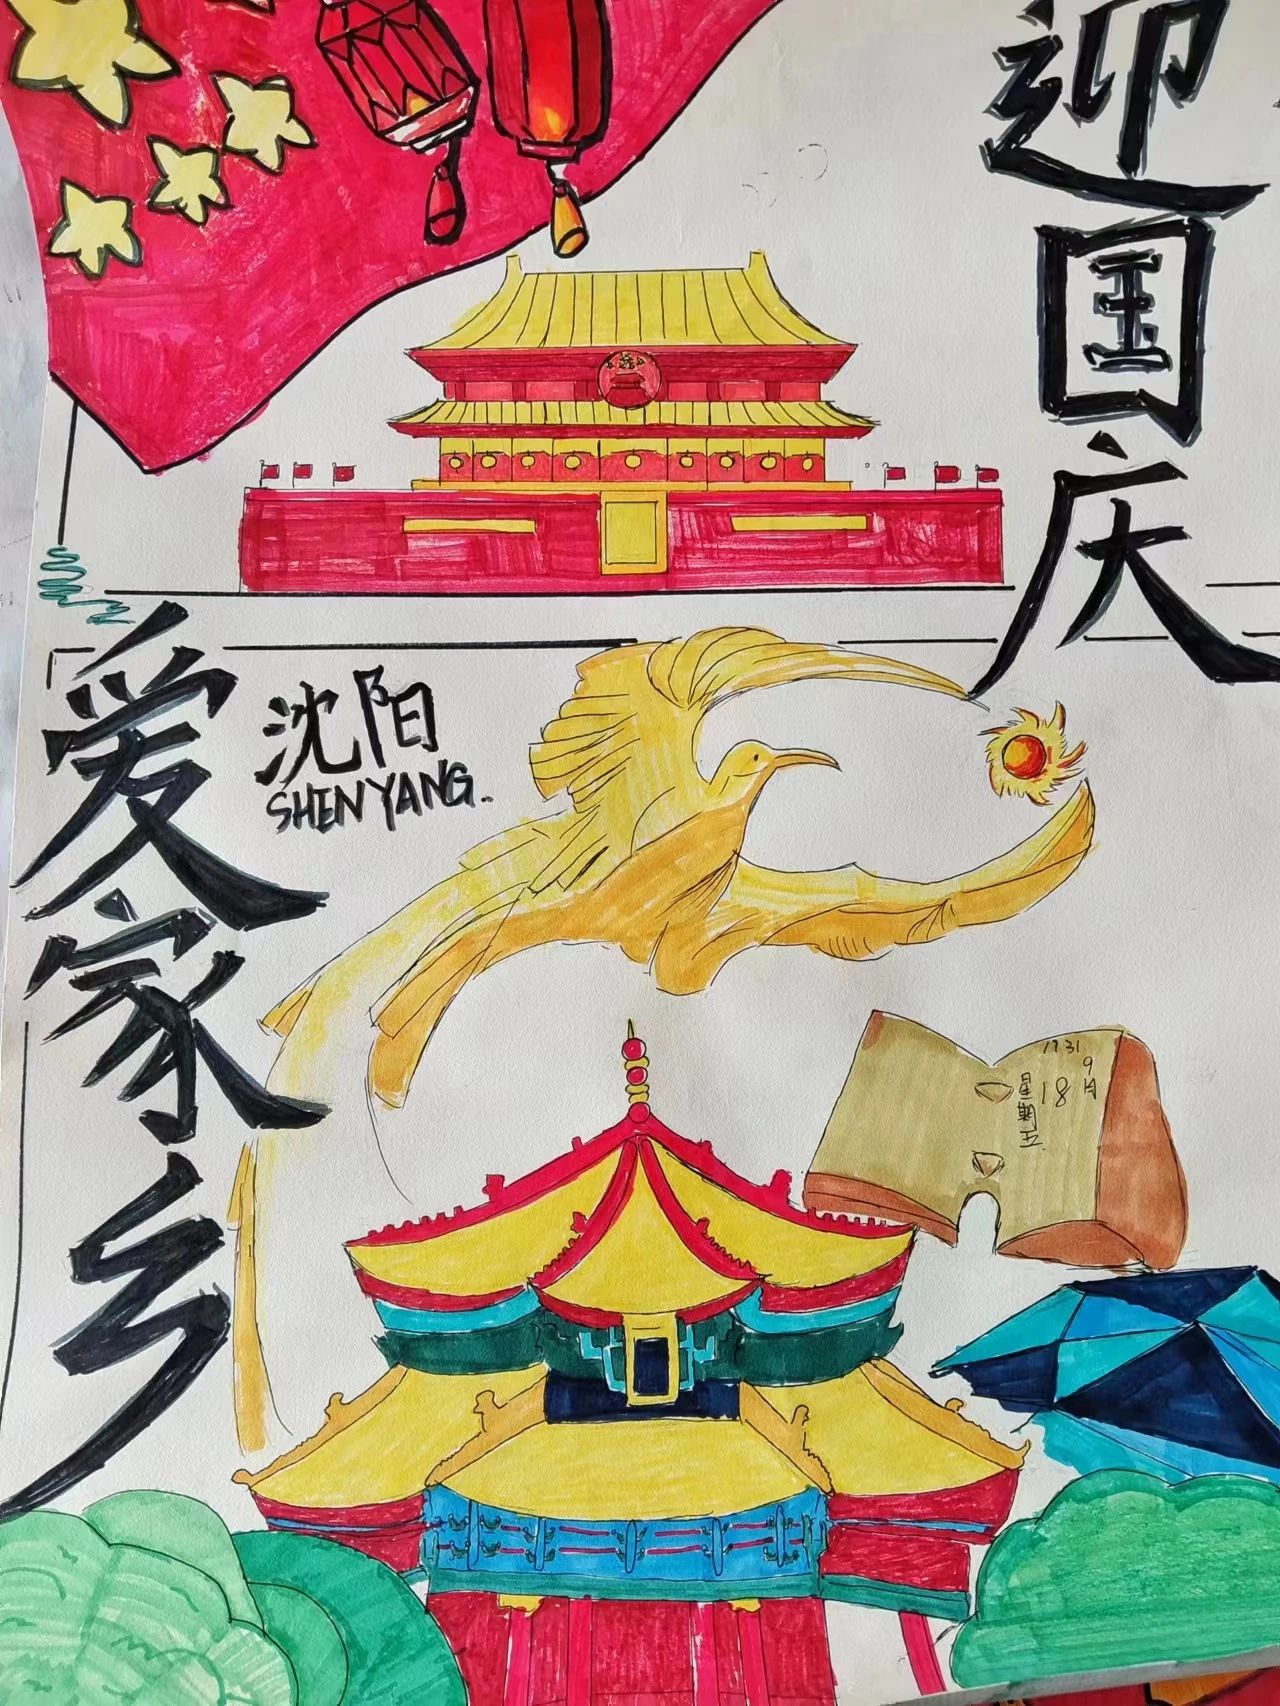 迎国庆
爱家乡
沈阳
SHENYANG..
1931
9月
18
星期五